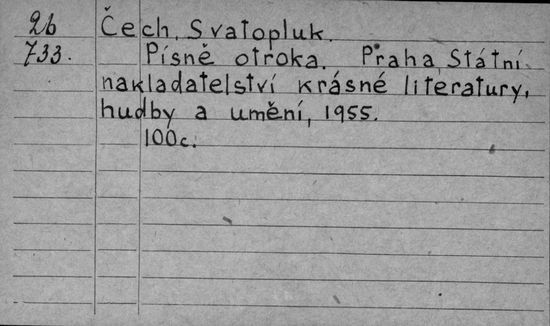 26 Čech, Svatopluk.
733. Písně otroka. Praha, Státní
nakladatelství krásné literatury,
hudby a umění, 1955.
100c.